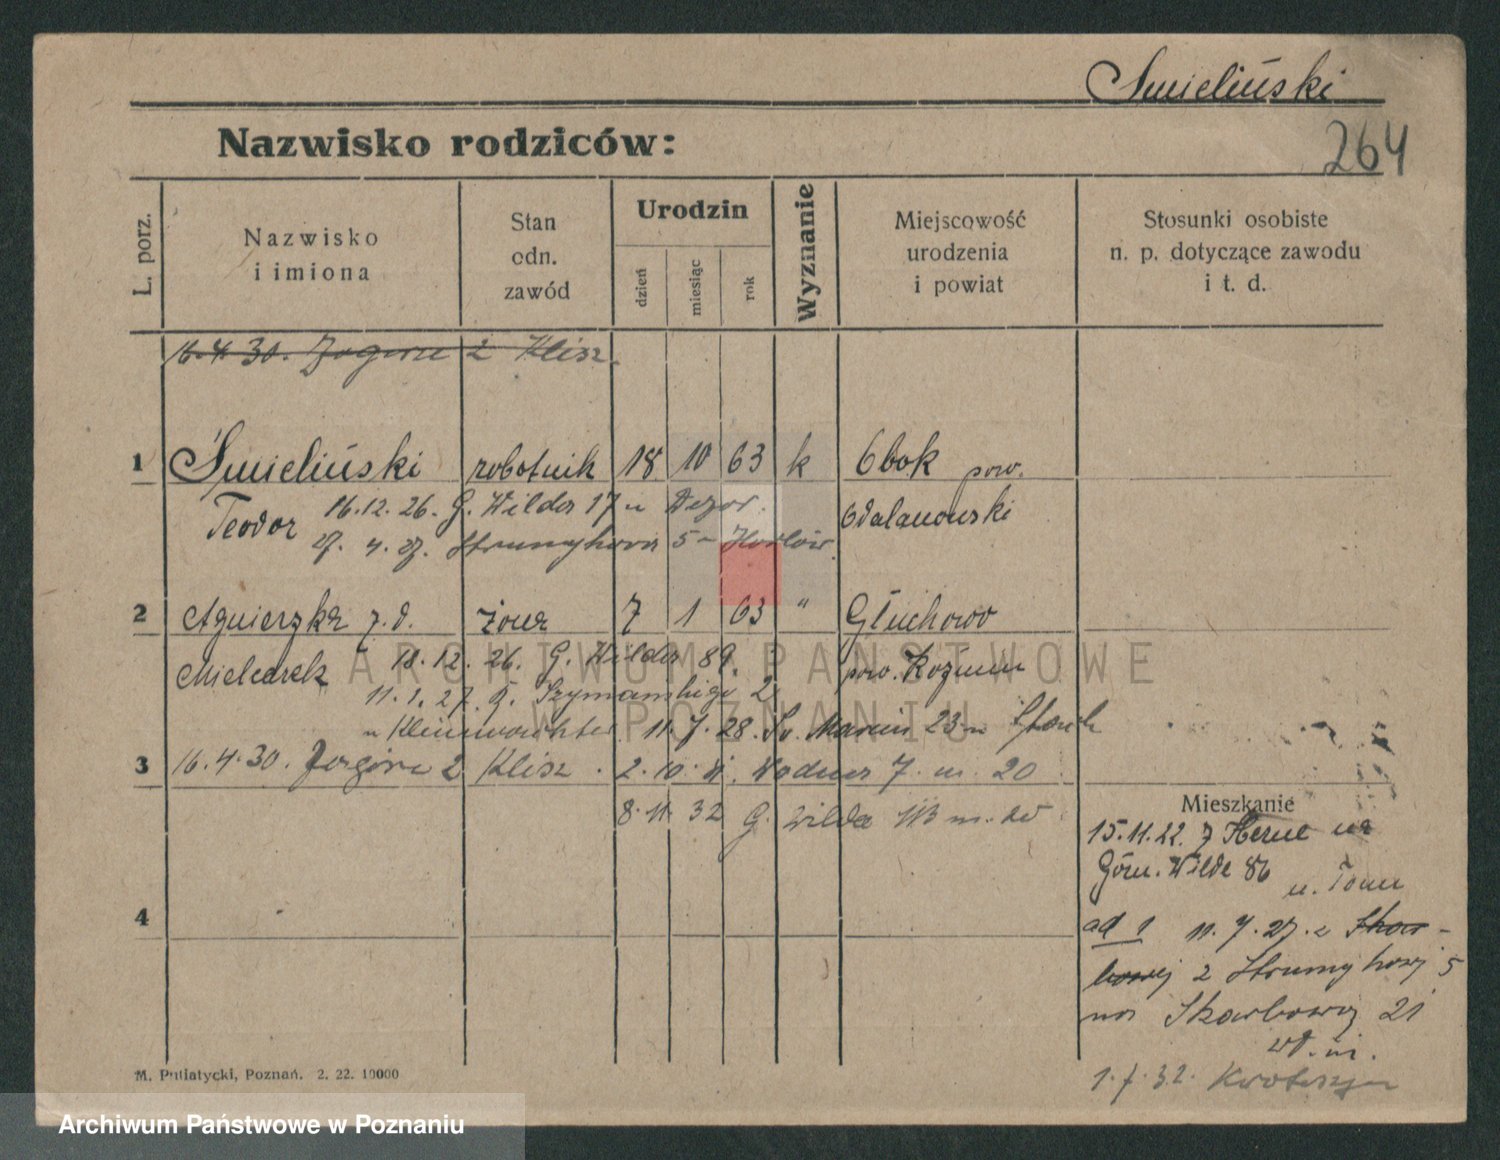 Śmieliński
264
Nazwisko rodziców:
L. porz.
Nazwisko
i imiona
Stan
odn.
zawód
Urodzin
dzień
miesiąc
rok
Wyznanie
Miejscowość
urodzenia
i powiat
Stosunki osobiste
n. p. dotyczące zawodu
i t. d.
16.4.30. 2 Klisz.
1 Śmieliński robotnik 18 10 63 k Obok pow.
Teodor 16.12.26. G. Wilda 17 u Odalanowski
27. 4. 27. Strumykowa 5
2 Agnieszka z. d. żona 7 1 63 " Głuchowo
Mielcarek 18.12.26. G. Wilda 89. pow. Koźmin
11.1.27. Szymańskiego 2
u 11.7.28. Św. Marcin 23 u
3 16.4.30. 2 Klisz. 2.10. Wodna 7. m. 20
8.11.32 G. Wilda 113 m.
Mieszkanie
15.11.22. z Herne na
Górn. Wilde 86
u. Tom
ad 1 11.7.27. z Skar-
bowej z Strumykowej 5
na Skarbową 21
wł. m.
1.7.32. Krotoszyn
4
M. Putiatycki, Poznań. 2. 22. 10000
ARCHIWUM PAŃSTWOWE
W POZNANIU
Archiwum Państwowe w Poznaniu